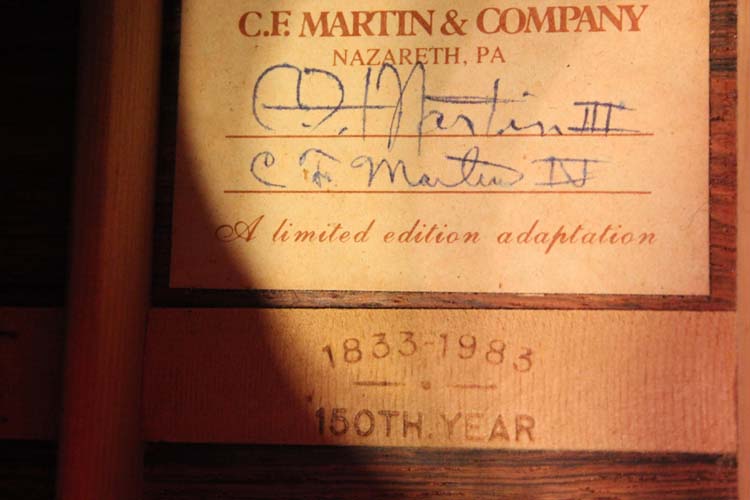 C.F. MARTIN & COMPANY
NAZARETH, PA
C. F. Martin III
C F Martin IV
A limited edition adaptation
1833-1983
150TH YEAR